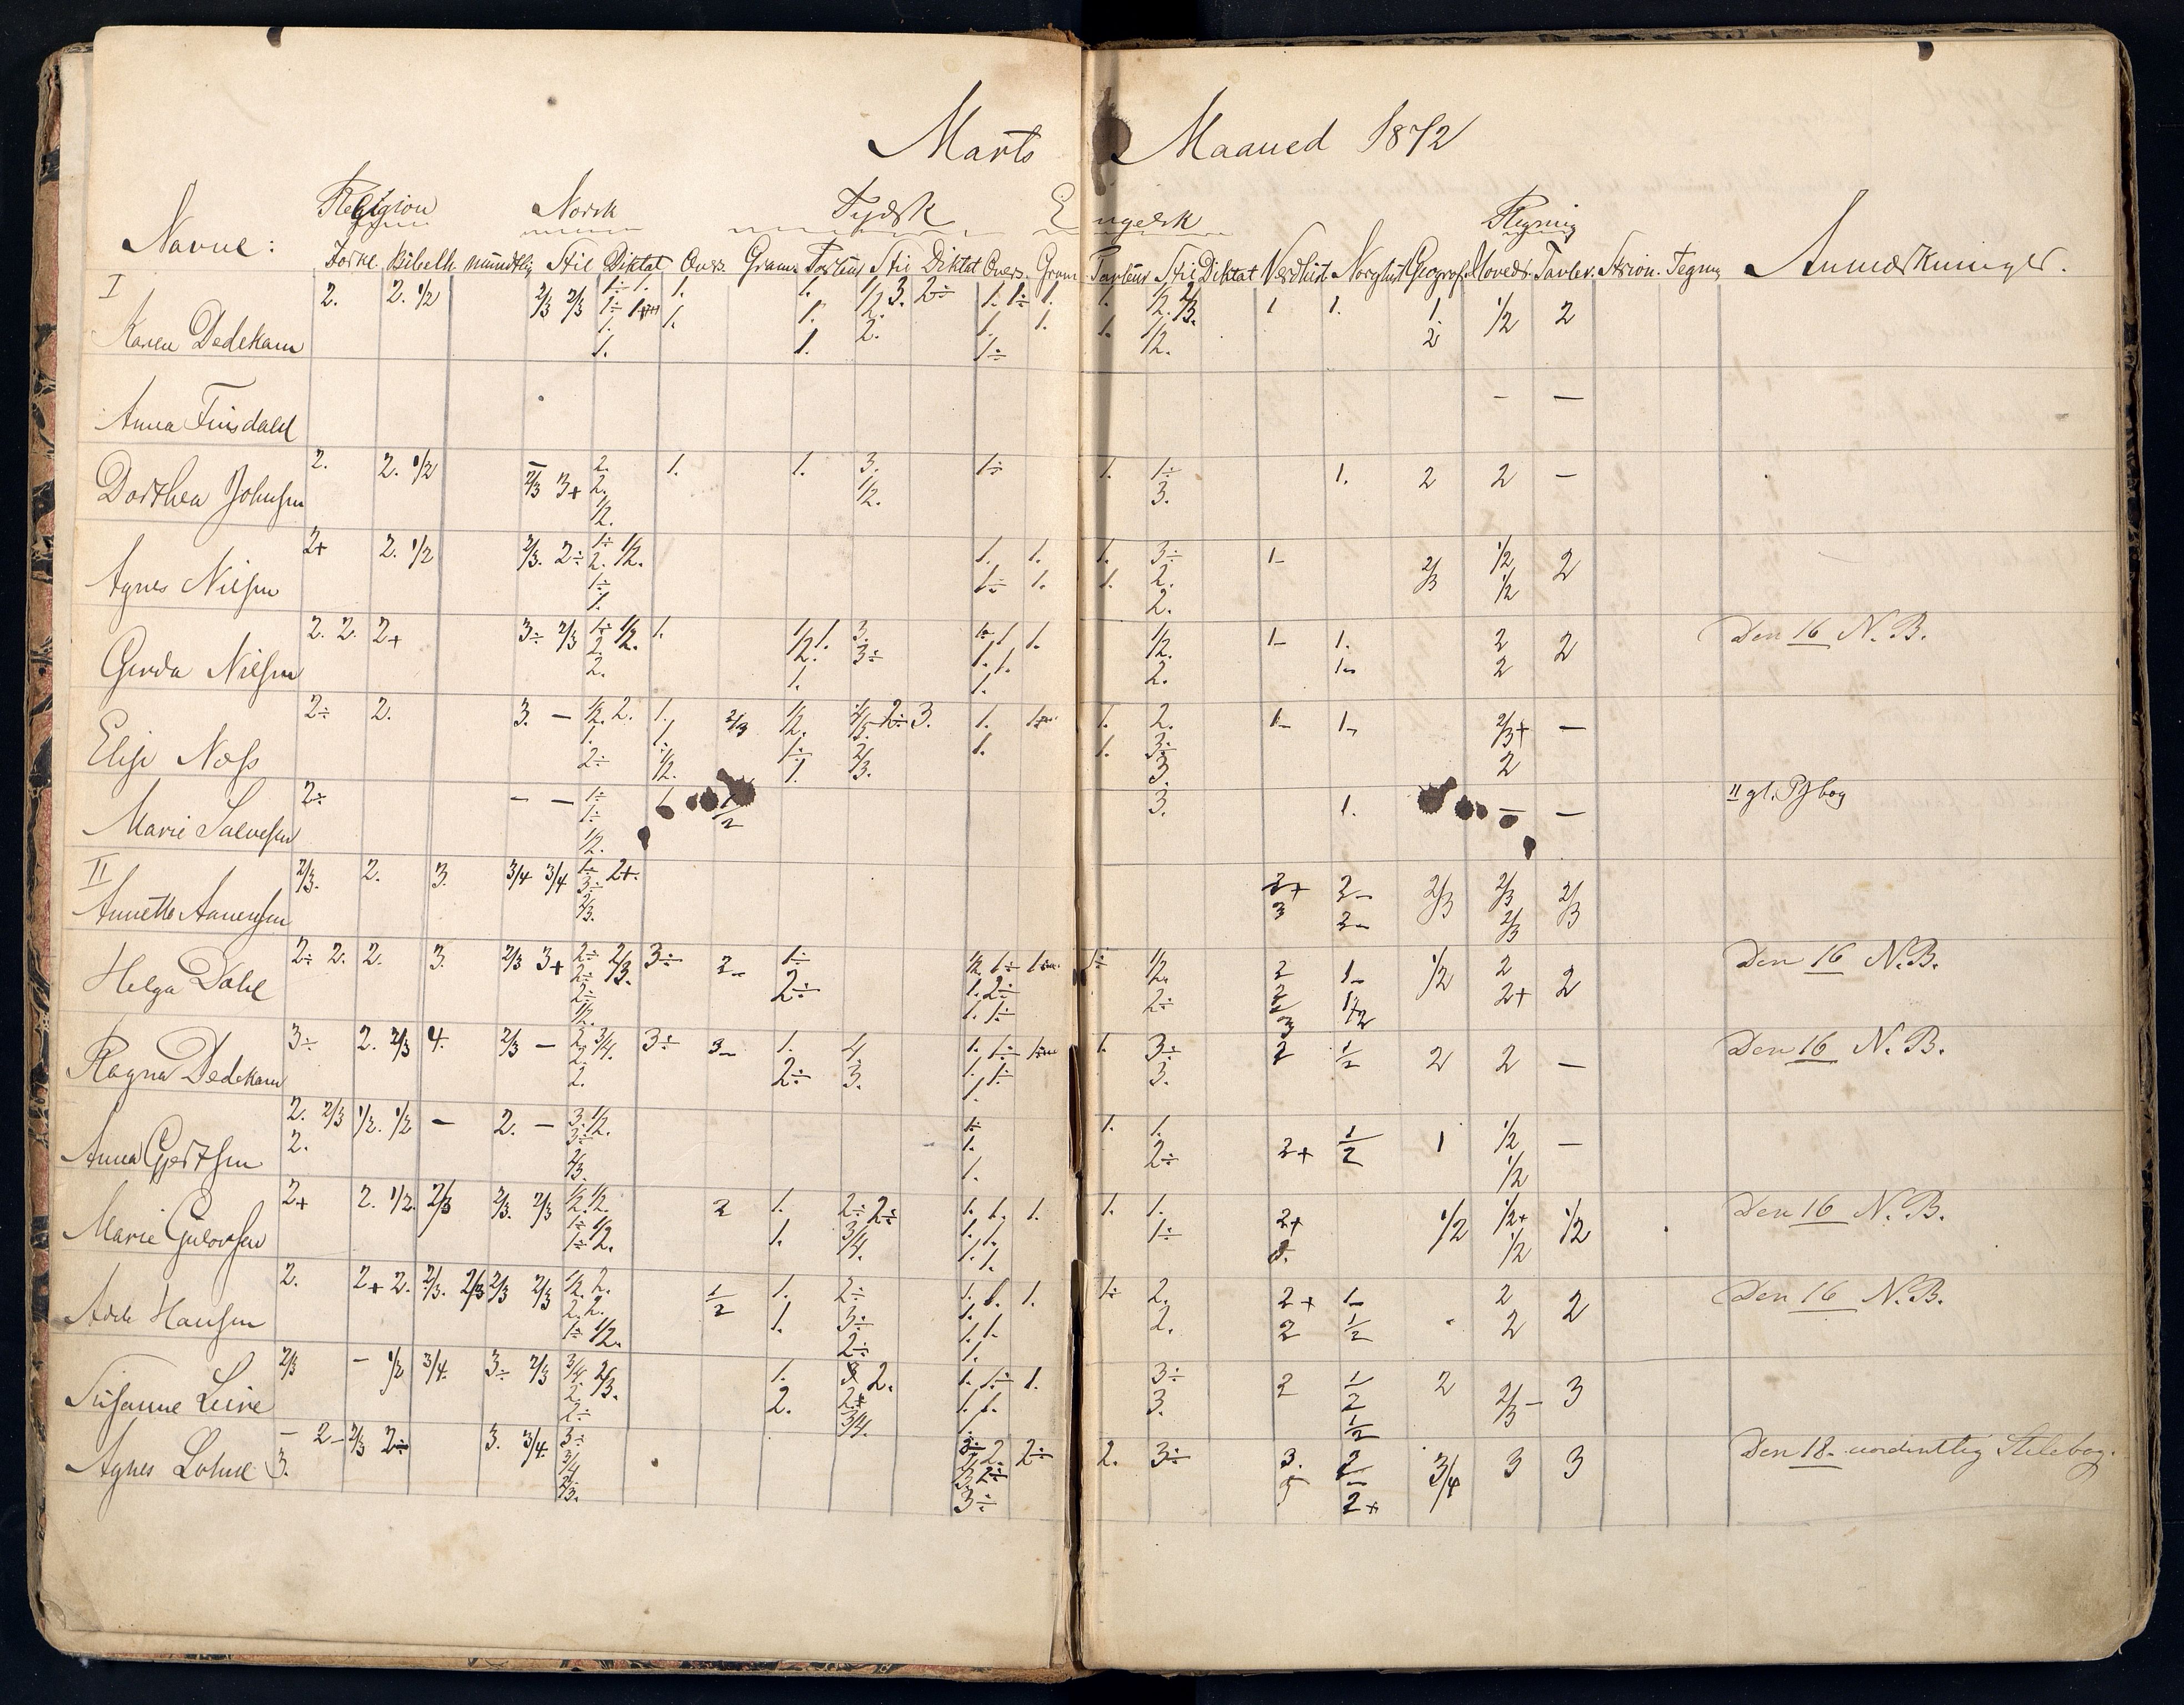 Marts Maaned 1872
Navne: Religion Norsk Tydsk Engelsk Regning Anmærkninger.
Forkl. Bibelh. mundtlig Stil Diktat Overs. Gram. Stil Diktat Overs. Gram. Stil Diktat Verdhist. Norghist. Geograf. Hovedr. Tavler. Skrivn. Tegning
I
Karen Dedekam 2. 2. 1/2 2/3 2/3 1÷ 1. 1. 1. 1/2 3. 2÷ 1. 1÷ 1. 1. 1/2. 2/3. 1 1. 1. 1/2 2
1. 1. 1. 2. 1. 1. 1. 1/2. 2
1. 1. 1÷
Anna Finsdahl – –
Dorthea Johnsen 2. 2. 1/2 – 2. 1. 1. 3. 1÷ 1. 1÷ 1. 2 2 –
2/3 3+ 2. 1/2. 3.
1/2.
Agnes Nilsen 2+ 2. 1/2 2/3. 2÷ 1÷ 1/2. 1. 1. 1. 3÷ 1- 2/3 1/2 2
2. 1÷ 1. 1. 2. 1/2
1÷ 2.
1.
Gerda Nilsen 2. 2. 2+ 3÷ 2/3 1÷ 1/2. 1. 1/2. 1. 3. 1. 1. 1/2. 1- 1. 2 2 Den 16 N. B.
2. 3÷ 1. 1. 2. 1- 2
2. 1. 1.
Elise Næss 2÷ 2. 3. – 1/2. 2. 1. 2/3 1/2. 4/5 2÷ 3. 1. 1. 2. 1- 1- 2/3+ –
1. 1. 1÷ 2/3. 1. 1. 3÷ 2
2÷ 1/2. 1. 3.
Marie Salvesen 2÷ – – 1÷ 1. 1/2 3. 1. – – II gl.
1÷
1/2.
II
Annette Aanensen 2/3. 2. 3. 3/4 3/4 1÷ 2+. 2+ 2- 2/3 2/3 2/3
3÷ 3 2- 2/3
2/3.
Helga Dahl 2÷ 2. 2. 3. 2/3 3+ 2÷ 2/3. 3÷ 2- 1÷ 1/2. 1÷ 1÷ 1/2. 2 1- 1/2 2 2 Den 16 N. B.
2÷ 2÷ 1. 2÷ 2÷ 2/3 1/2 2+
2÷ 1. 1÷
1/2.
Ragna Dedekam 3÷ 2. 2/3 4. 2/3 – 2. 3/4. 3÷ 3- 1. 4. 1. 1÷ 1. 3÷ 2 1/2 2 2 – Den 16 N. B.
2. 2÷ 3. 1. 1÷ 3.
2. 1.
Anna Gjertsen 2. 2/3 1/2. 1/2 – 2. – 3. 1/2. 1÷ 1. 1. 2+ 1/2 1 1/2 –
2. 3÷ 1. 2÷ 1/2
2/3. 1.
Marie Gulovsen 2+ 2. 1/2. 2/3 2/3. 2/3 1/2. 1/2. 2 1. 2÷ 2÷ 1. 1. 1. 1. 1. 2+ 1/2 1/2+ 1/2 Den 16 N. B.
1÷ 1/2 1. 3/4. 1. 1. 1÷ 1/2
1÷ 1/2. 1. 1.
Hansen 2. 2+ 2. 2/3. 2/3 2/3 2/3 1/2. 2. 1/2 1. 2÷ 1. 1. 1÷ 2. 2+ 1- 2 2 Den 16 N. B.
2. 2. 1. 3÷ 1. 2. 2 1/2 2
1÷ 1/2. 2÷ 1. 1.
1.
Susanne Leire 2/3 – 1/2 3/4. 3÷ 2/3 3/4. 2/3. 1. 3 2. 1. 1÷ 1. 3÷ 2 1/2 2 2/3- 3
2. 2. 2+ 1. 1. 3. 1/2
2÷ 3/4. 1.
Agnes Lohne – 2- 2/3 2÷ 3. 3/4. 3÷ 3÷ 2. 2÷ 2. 3÷ 3. 2 3/4 3 3 Den 18. uordentlig Stilebog.
3. 3/4 2/3 2÷ 2+
2/3. 3÷